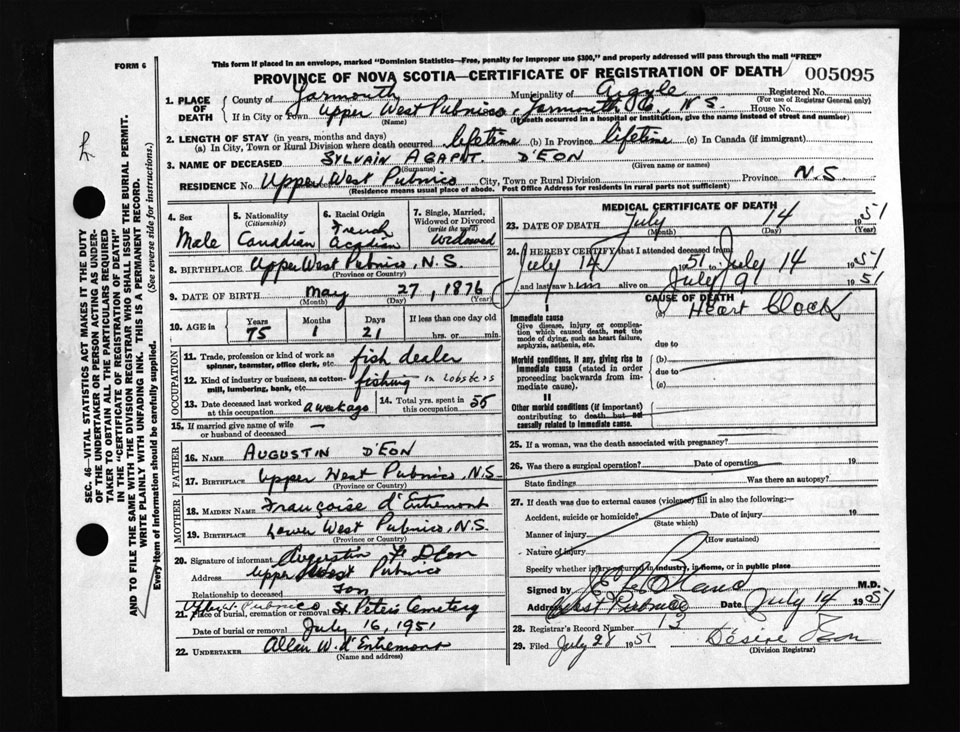 This form if placed in an envelope, marked "Dominion Statistics—Free, penalty for improper use $300," and properly addressed will pass through the mail "FREE"
FORM 6
PROVINCE OF NOVA SCOTIA—CERTIFICATE OF REGISTRATION OF DEATH
005095
1. PLACE OF DEATH
County of Yarmouth Municipality of Argyle Registered No.
(For use of Registrar General only)
If in City or Town Upper West Pubnico, Yarmouth Co., N.S. House No.
(Name) (If death occurred in a hospital or institution, give the name instead of street and number)
2. LENGTH OF STAY (in years, months and days)
(a) In City, Town or Rural Division where death occurred lifetime (b) In Province lifetime (c) In Canada (if immigrant)
3. NAME OF DECEASED SYLVAIN AGAPIT. D'EON
(Surname) (Given name or names)
RESIDENCE No. Upper West Pubnico City, Town or Rural Division Province N.S.
(Residence means usual place of abode. Post Office Address for residents in rural parts not sufficient)
4. Sex
Male
5. Nationality (Citizenship)
Canadian
6. Racial Origin
French Acadian
7. Single, Married, Widowed or Divorced (write the word)
Widowed
8. BIRTHPLACE Upper West Pubnico, N.S.
(Province or Country)
9. DATE OF BIRTH May 27, 1876
(Month) (Day) (Year)
10. AGE in
Years Months Days If less than one day old
75 1 21 hrs. or min.
OCCUPATION
11. Trade, profession or kind of work as spinner, teamster, office clerk, etc. fish dealer
12. Kind of industry or business, as cotton-mill, lumbering, bank, etc. fishing in lobsters
13. Date deceased last worked at this occupation a week ago
14. Total yrs. spent in this occupation 56
15. If married give name of wife or husband of deceased —
FATHER
16. Name AUGUSTIN D'EON
17. Birthplace Upper West Pubnico, N.S.
(Province or Country)
MOTHER
18. Maiden Name Françoise d'Entremont
19. Birthplace Lower West Pubnico, N.S.
(Province or Country)
20. Signature of informant Augustin F. D'Eon
Address Upper West Pubnico
Relationship to deceased Son
21. Place of burial, cremation or removal Upper W. Pubnico St. Peter's Cemetery
Date of burial or removal July 16, 1951
22. UNDERTAKER Allan W. d'Entremont
(Name and address)
MEDICAL CERTIFICATE OF DEATH
23. DATE OF DEATH July 14 1951
(Month) (Day) (Year)
24. I HEREBY CERTIFY that I attended deceased from
July 14 1951 to July 14 1951
and last saw him alive on July 9 1951
CAUSE OF DEATH
Immediate cause
Give disease, injury or complication which caused death, not the mode of dying, such as heart failure, asphyxia, asthenia, etc.
(a) Heart Block
due to
Morbid conditions, if any, giving rise to immediate cause (stated in order proceeding backwards from immediate cause).
(b)
due to
(c)
II
Other morbid conditions (if important) contributing to death but not causally related to immediate cause.
25. If a woman, was the death associated with pregnancy?
26. Was there a surgical operation? Date of operation 19
State findings Was there an autopsy?
27. If death was due to external causes (violence) fill in also the following:—
Accident, suicide or homicide? Date of injury 19
(State which)
Manner of injury
(How sustained)
Nature of injury
Specify whether injury occurred in industry, in home, or in public place
Signed by M.D.
Address West Pubnico Date July 14 1951
28. Registrar's Record Number 13
29. Filed July 28 1951 Désiré D'Eon
(Division Registrar)
SEC. 46—VITAL STATISTICS ACT MAKES IT THE DUTY
OF THE UNDERTAKER OR PERSON ACTING AS UNDER-
TAKER TO OBTAIN ALL THE PARTICULARS REQUIRED
IN THE "CERTIFICATE OF REGISTRATION OF DEATH"
AND TO FILE THE SAME WITH THE DIVISION REGISTRAR WHO SHALL ISSUE THE BURIAL PERMIT.
WRITE PLAINLY WITH UNFADING INK. THIS IS A PERMANENT RECORD.
Every item of information should be carefully supplied. (See reverse side for instructions.)